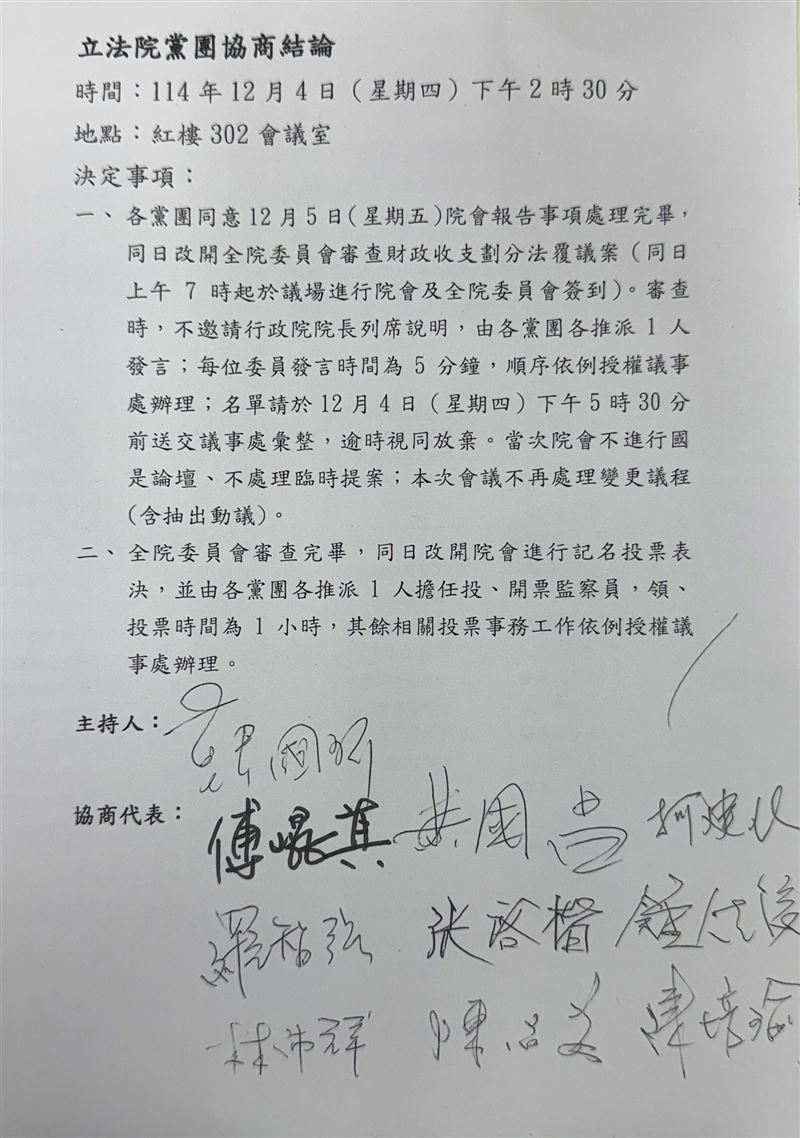 立法院黨團協商結論
時間：114年12月4日（星期四）下午2時30分
地點：紅樓302會議室
決定事項：
一、各黨團同意12月5日(星期五)院會報告事項處理完畢，
同日改開全院委員會審查財政收支劃分法覆議案（同日
上午 7 時起於議場進行院會及全院委員會簽到）。審查
時，不邀請行政院院長列席說明，由各黨團各推派 1 人
發言；每位委員發言時間為 5 分鐘，順序依例授權議事
處辦理；名單請於12月4日（星期四）下午5時30分
前送交議事處彙整，逾時視同放棄。當次院會不進行國
是論壇、不處理臨時提案；本次會議不再處理變更議程
(含抽出動議)。
二、全院委員會審查完畢，同日改開院會進行記名投票表
決，並由各黨團各推派 1 人擔任投、開票監察員，領、
投票時間為 1 小時，其餘相關投票事務工作依例授權議
事處辦理。
主持人：韓國瑜
協商代表：
傅崐萁 黃國昌 柯建銘
羅智強 张啓楷 鍾佳濱
林沛祥 陳培瑜